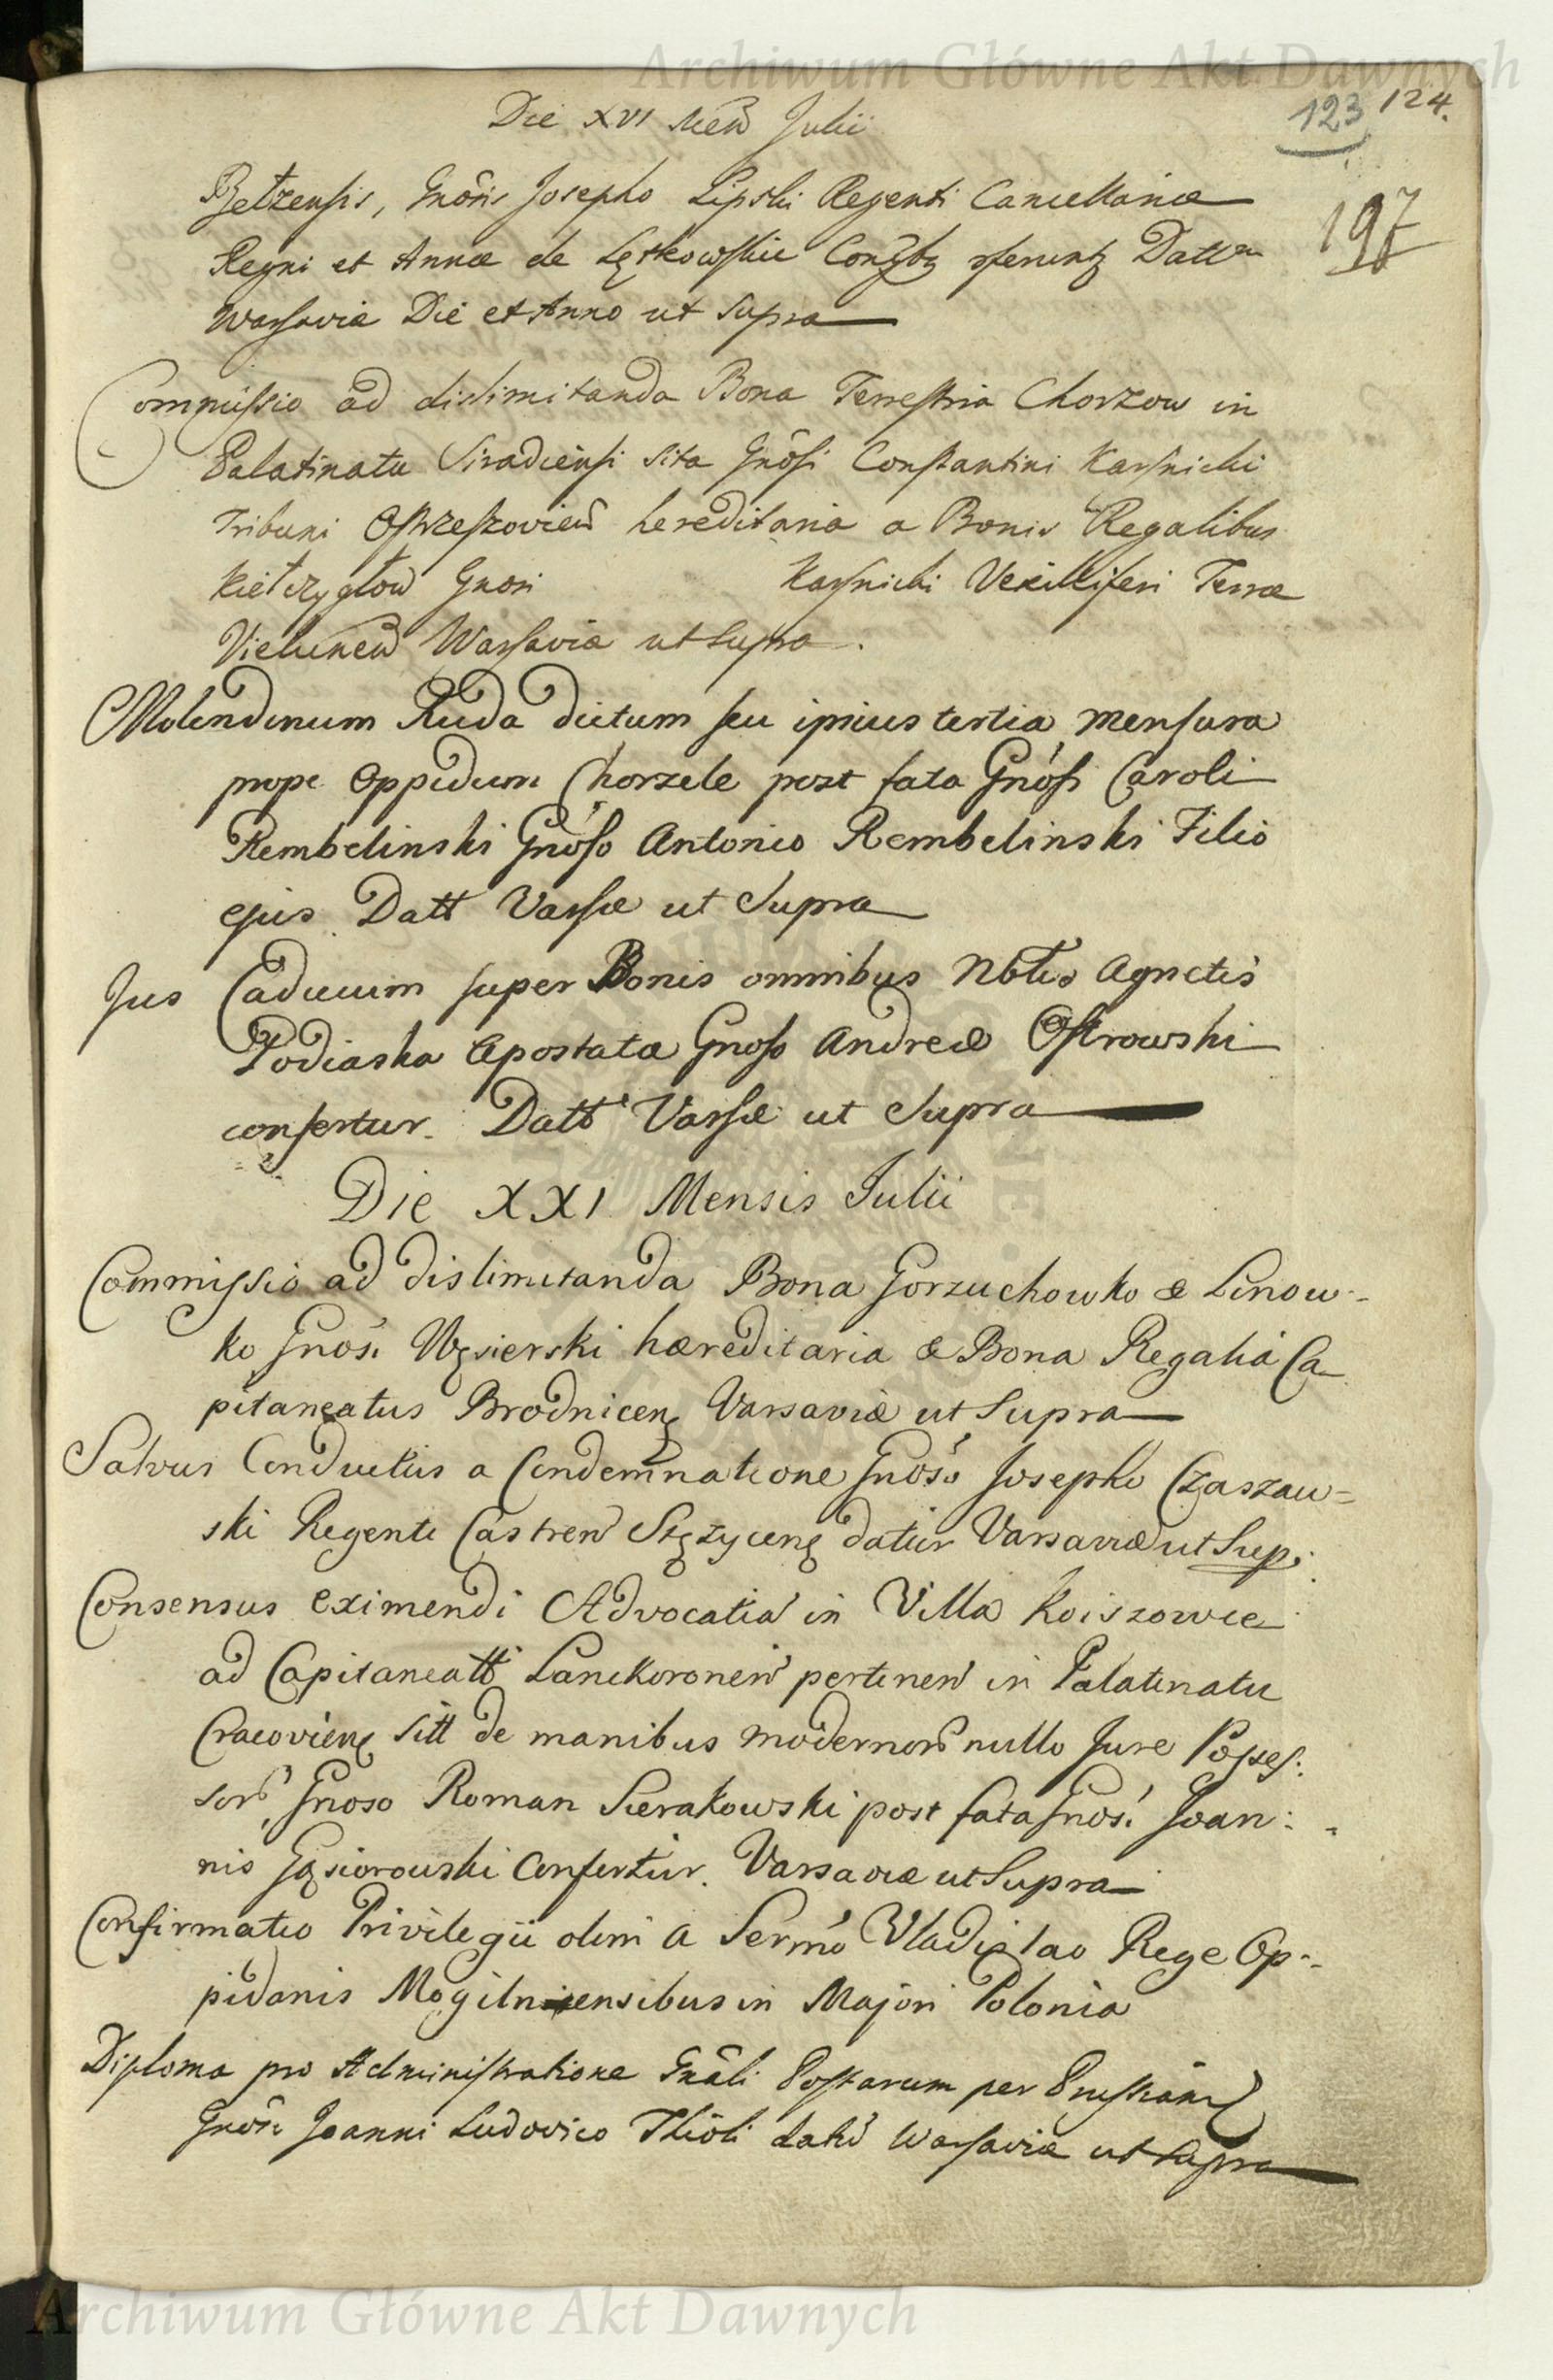 Archiwum Główne Akt Dawnych
Die XVI Mens Julii
123 124.
197
Betzensis, Gnosis Josepho Lipski Regenti Cancellariæ
Regni et Annæ de Conjgbg Datt
Warsaviæ Die et Anno ut supra
Commissio ad dislimitanda Bona Terrestria Chorzow in
Palatinatu Siradiensi sita Gnosi Constantini Karsnicki
Tribuni Ostrzeszovien hereditaria a Bonis Regalibus
Kiełczygłow Gnosi Karsnicki Vexilliferi Terræ
Vielunen Warsaviæ ut supra.
Molendinum Ruda dictum seu ipsius tertia mensura
prope Oppidum Chorzele post fata Gnosi Caroli
Rembelinski Gnoso Antonio Rembelinski Filio
ejus Datt Varsæ ut Supra
Jus Caducum super Bonis omnibus Nbtis Agnetis
Podiaska Apostatæ Gnoso Andreæ Ostrowski
confertur. Datt Varsæ ut Supra
Die XXI Mensis Julii
Commissio ad dislimitanda Bona Gorzuchowko & Linow-
ko Gnosi Węsierski hæreditaria & Bona Regalia Ca
pitaneatus Brodnicen Varsaviæ ut Supra
Salvus Conductus a Condemnatione Gnoso Josepho Czaszaw=
ski Regenti Castren Stężycen datur Varsaviæ ut Sup:
Consensus eximendi Advocatia in Villa Koiszowce
ad Capitaneatt Lanckoronen pertinen in Palatinatu
Cracovien sitt de manibus modernor nullo Jure Posses:
sor Gnoso Roman Sierakowski post fata Gnosi Joan:
nis Gąsiorowski Confertur. Varsaviæ ut Supra
Confirmatio Privilegii olim a Sermo Vladislao Rege Op-
pidanis Mogilnicensibus in Majori Polonia
Diploma pro Administratione Gnali Postarum per Prussiam
Gnosi Joanni Ludovico datu Warsaviæ ut supra
Archiwum Główne Akt Dawnych